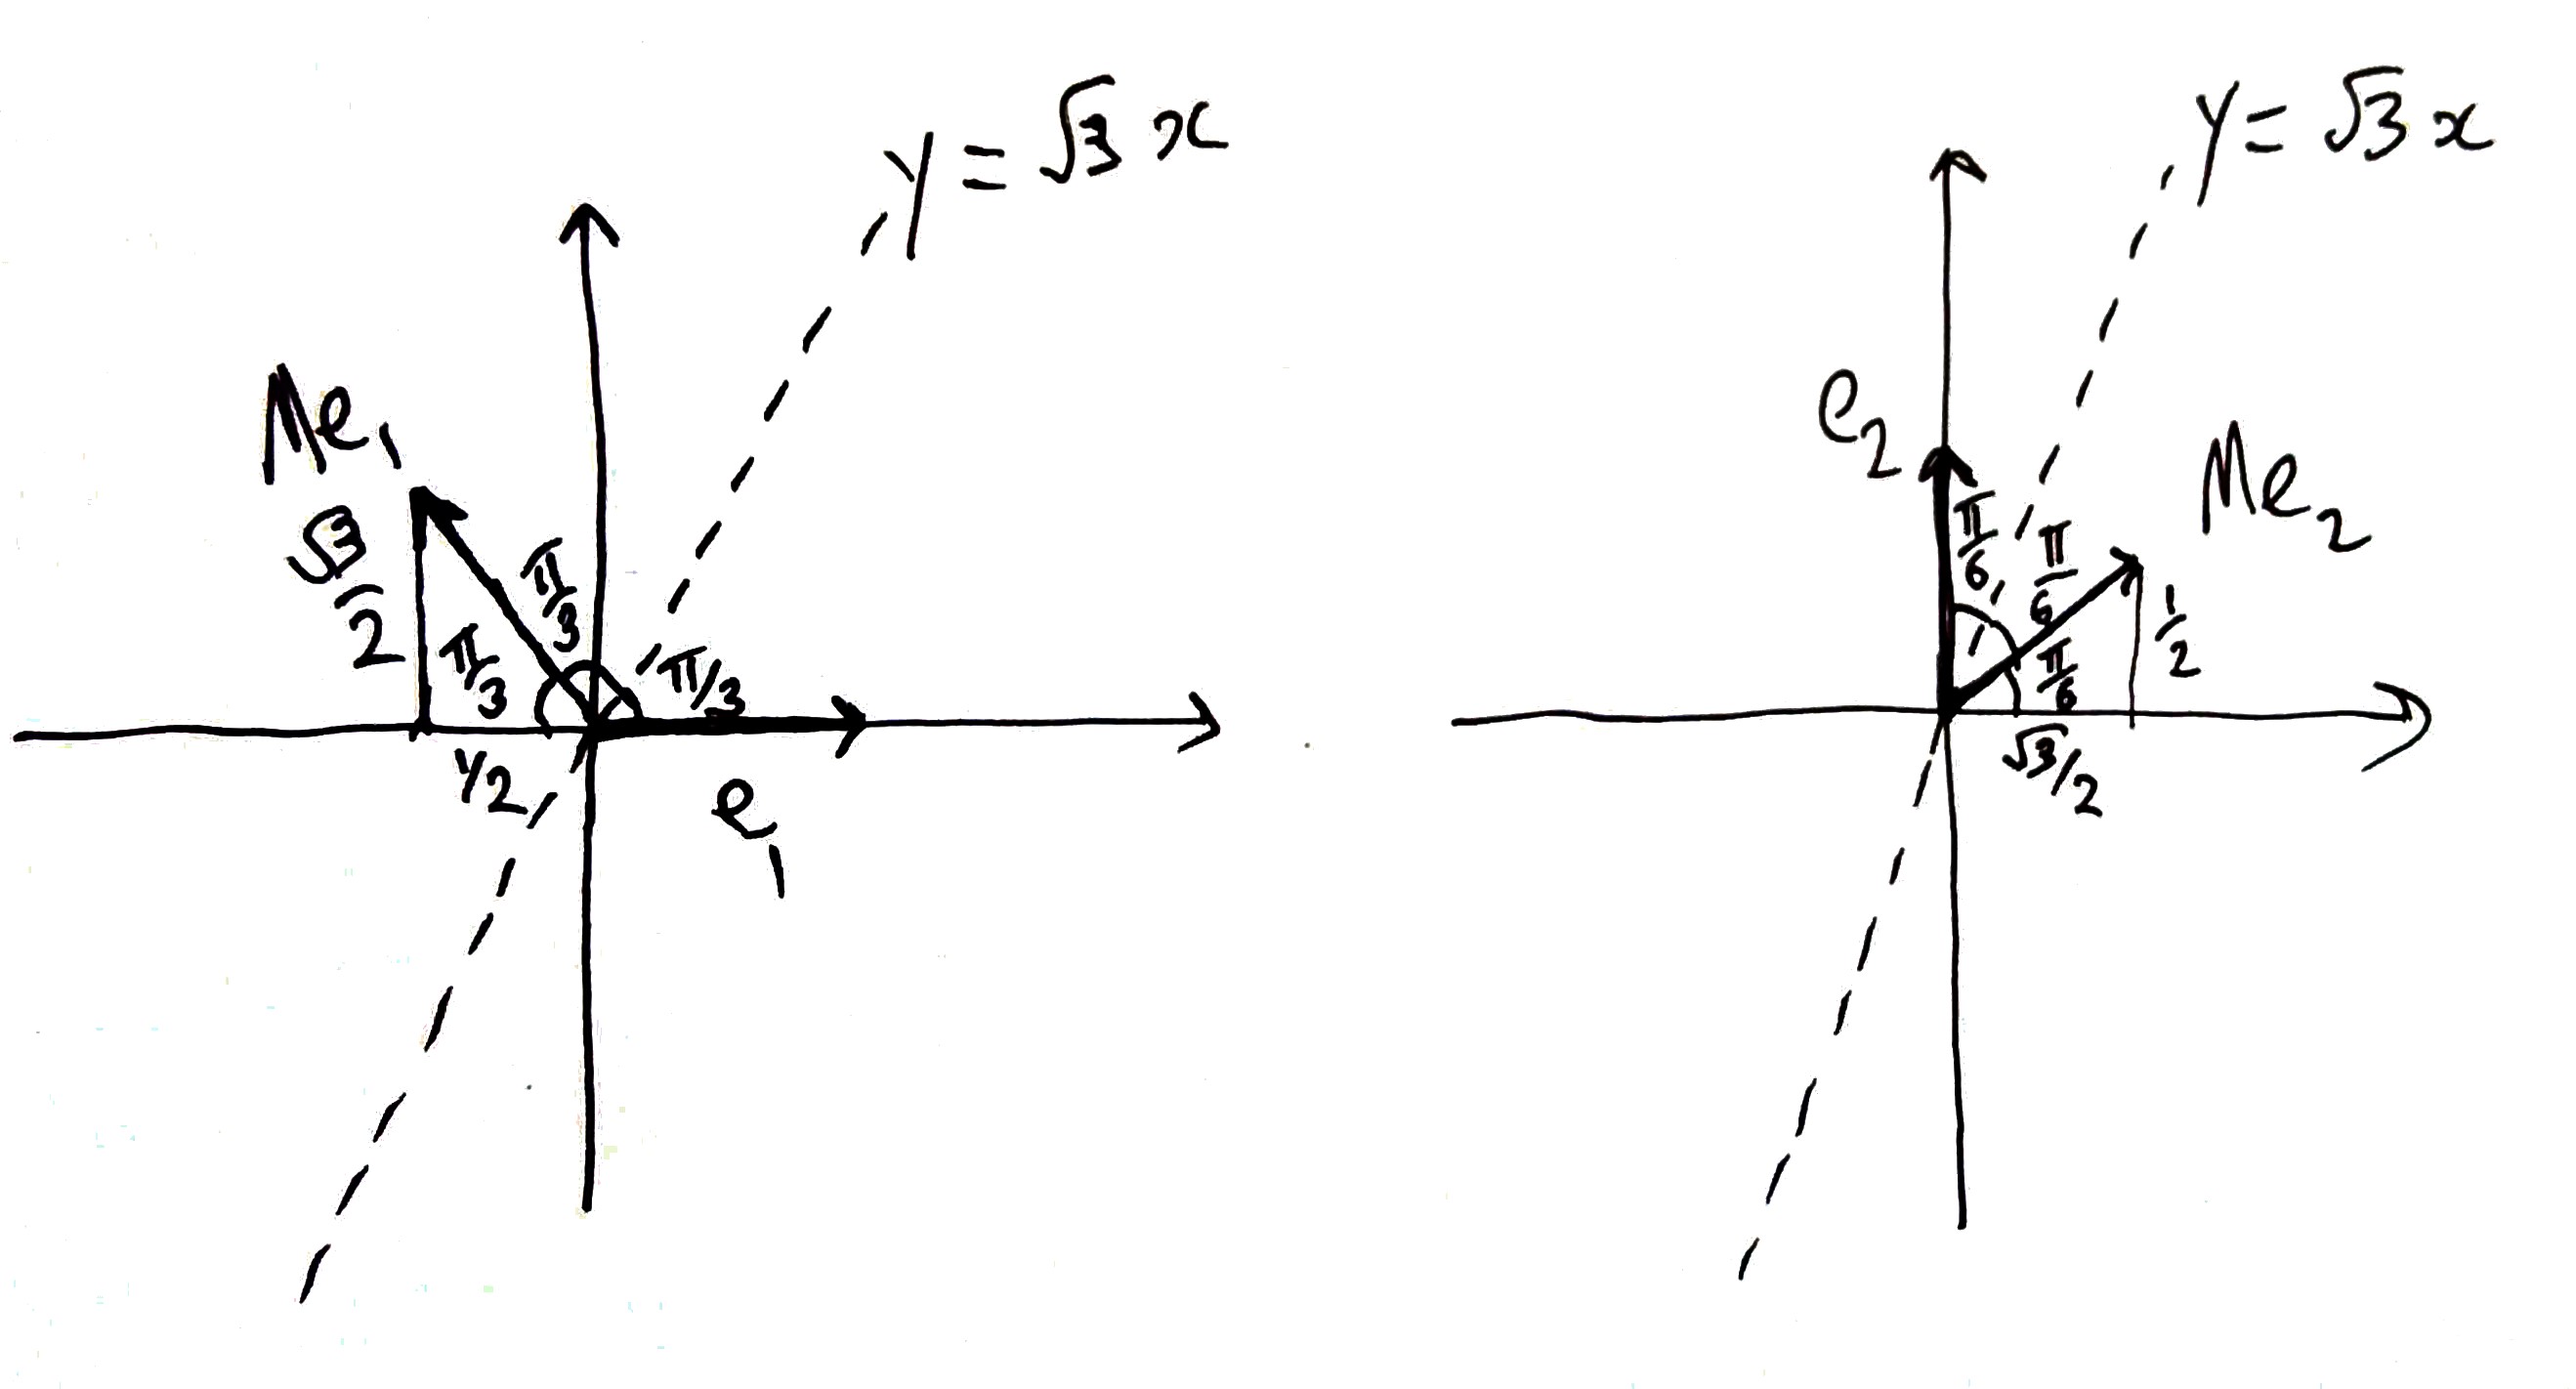 y = √3 x
Me₁
√3/2
π/3
π/3
π/3
1/2
e₁
y = √3 x
e₂
Me₂
π/6
π/6
π/6
1/2
√3/2